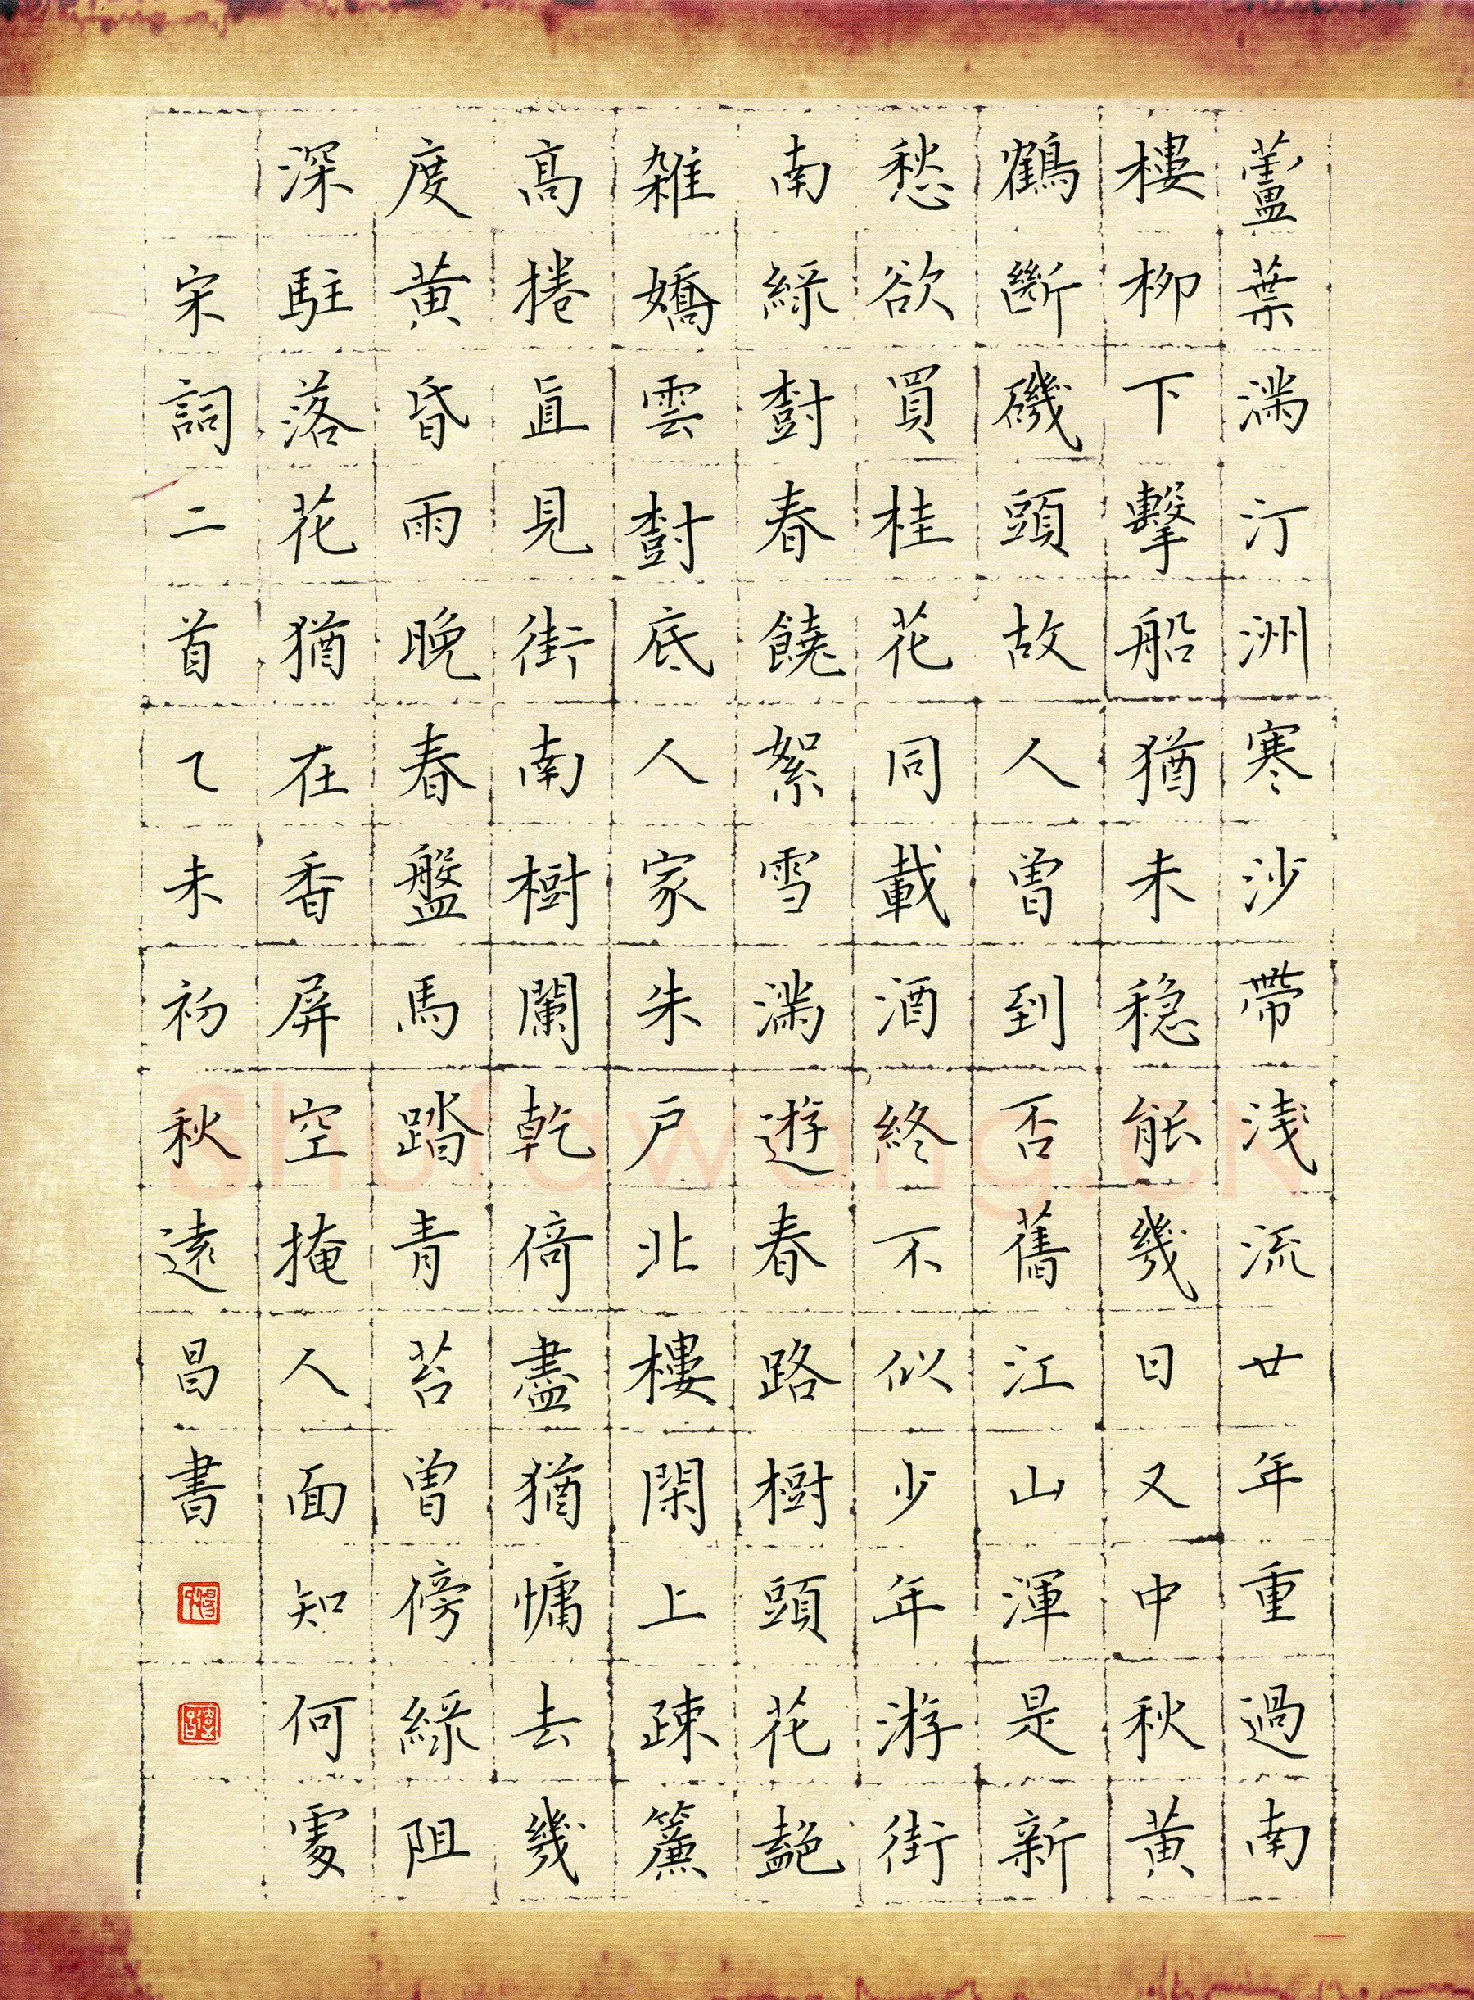 蘆葉滿汀洲寒沙帶淺流廿年重過南
樓柳下擊船猶未穏能幾日又中秋黃
鶴斷磯頭故人曾到否舊江山渾是新
愁欲買桂花同載酒終不似少年游街
南綠樹春饒絮雪滿遊春路樹頭花艷
雜嬌雲樹底人家朱戶北樓閑上疎簾
高捲直見街南樹闌乾倚盡猶慵去幾
度黃昏雨晚春盤馬踏青苔曾傍綠阻
深駐落花猶在香屏空掩人面知何處
宋詞二首乙未初秋遠昌書
Shufawang.CN